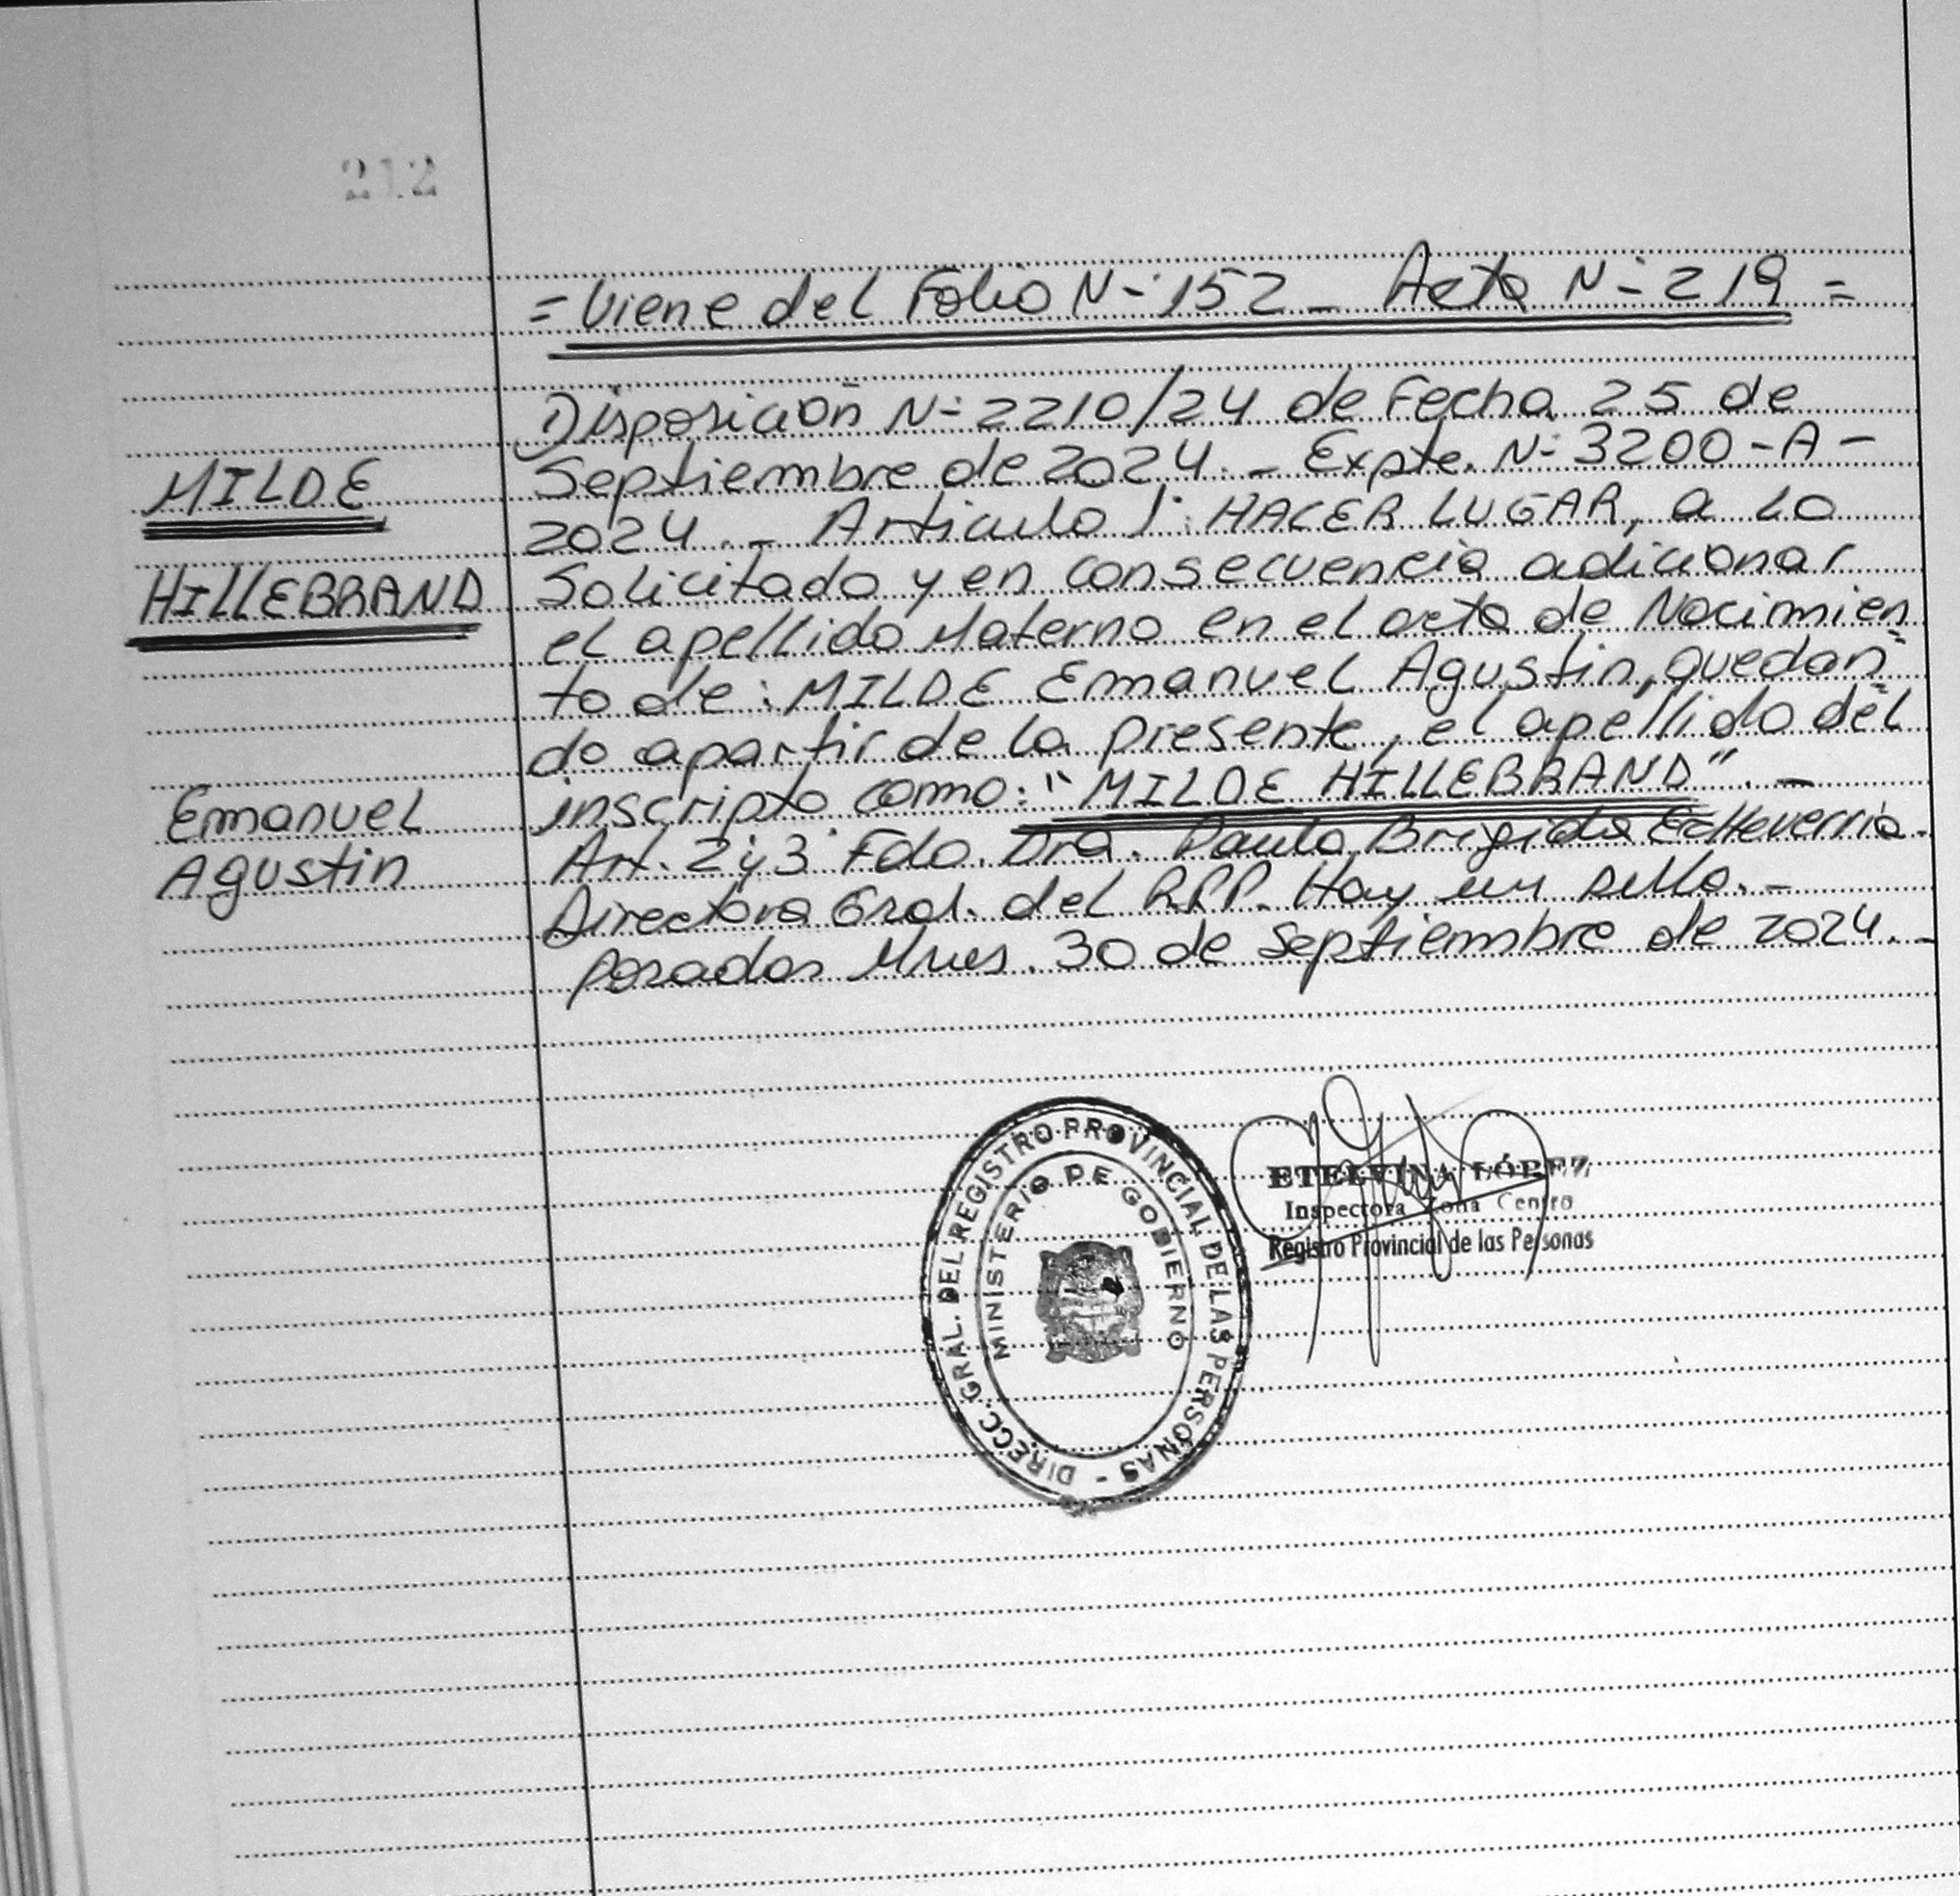 212
= Viene del Folio N-º 152 _ Acta N-º 219 =
Disposición N-º 2210/24 de Fecha 25 de
MILDE
Septiembre de 2024. _ Expte. N-º 3200-A-
2024. _ Articulo 1º: HACER LUGAR, a lo
HILLEBRAND
Solicitado y en consecuencia adicionar
el apellido Materno en el acta de Nacimien
to de: MILDE Emanuel Agustin, quedan
do apartir de la presente, el apellido del
Emanuel
inscripto como: "MILDE HILLEBRAND". _
Agustin
Art. 2º y 3º Fdo. Dra. Paula Brigida Etcheverria.
Directora Gral. del RPP. Hay un sello. _
Posadas Mnes. 30 de Septiembre de 2024. _
DIRECC. GRAL. DEL REGISTRO PROVINCIAL DE LAS PERSONAS -
MINISTERIO DE GOBIERNO
ETELVINA LÓPEZ
Inspectora Zona Centro
Registro Provincial de las Personas